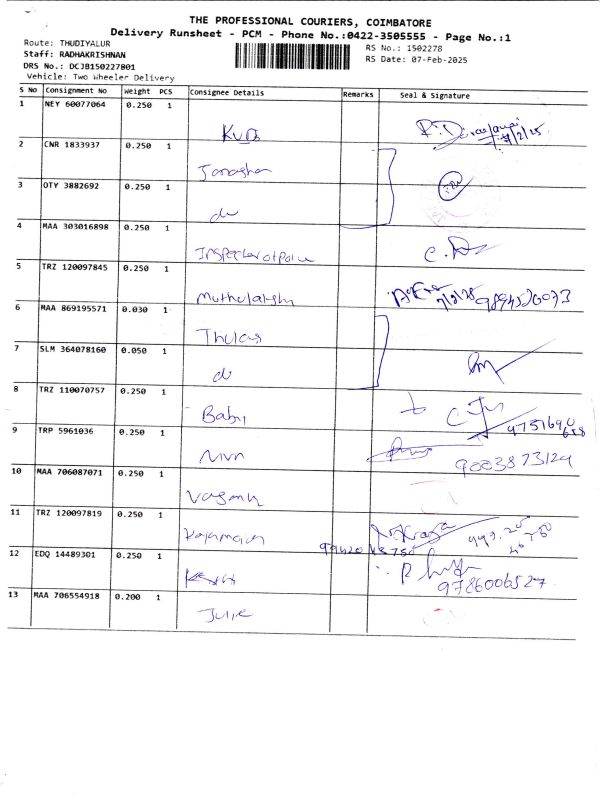 THE PROFESSIONAL COURIERS, COIMBATORE
Delivery Runsheet - PCM - Phone No.:0422-3505555 - Page No.:1
Route: THUDIYALUR
RS No.: 1502278
Staff: RADHAKRISHNAN
RS Date: 07-Feb-2025
DRS No.: DCJB150227801
Vehicle: Two Wheeler Delivery
S No Consignment No Weight PCS Consignee Details Remarks Seal & Signature
1 NEY 60077064 0.250 1
2 CNR 1833937 0.250 1
3 OTY 3882692 0.250 1
do
4 MAA 303016898 0.250 1
5 TRZ 120097845 0.250 1
Muthulakshi 7/2/25 9894520073
6 MAA 869195571 0.030 1
Thulas
7 SLM 364078160 0.050 1
do
8 TRZ 110070757 0.250 1
Baby
9 TRP 5961036 0.250 1
9003873124
10 MAA 706087071 0.250 1
Vasank
11 TRZ 120097819 0.250 1
12 EDQ 14489301 0.250 1
9786006527
13 MAA 706554918 0.200 1
Julie